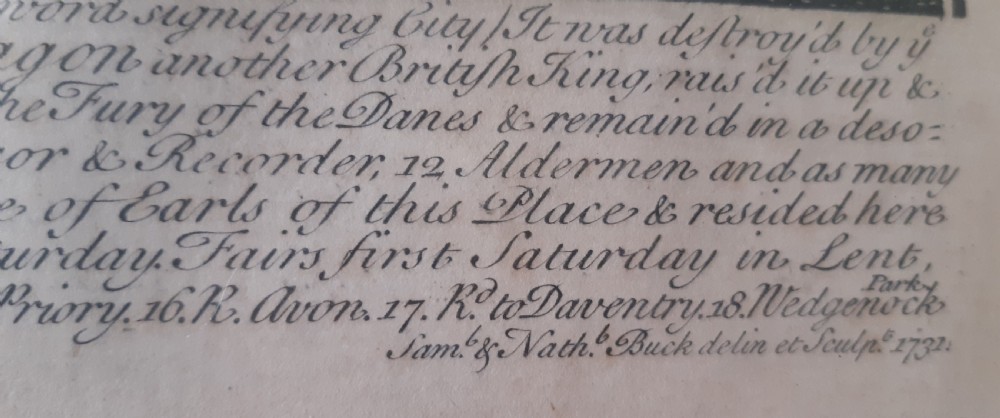 word signifying City) It was destroy'd by yᵉ
agon another British King, rais'd it up &
he Fury of the Danes & remain'd in a deso=
or & Recorder, 12 Aldermen and as many
e of Earls of this Place & resided here
urday. Fairs first Saturday in Lent,
Priory. 16. R. Avon. 17. Rᵈ to Daventry. 18. Wedgenock Park
Samˡ & Nathˡ Buck delin et Sculpᵗ 1731.